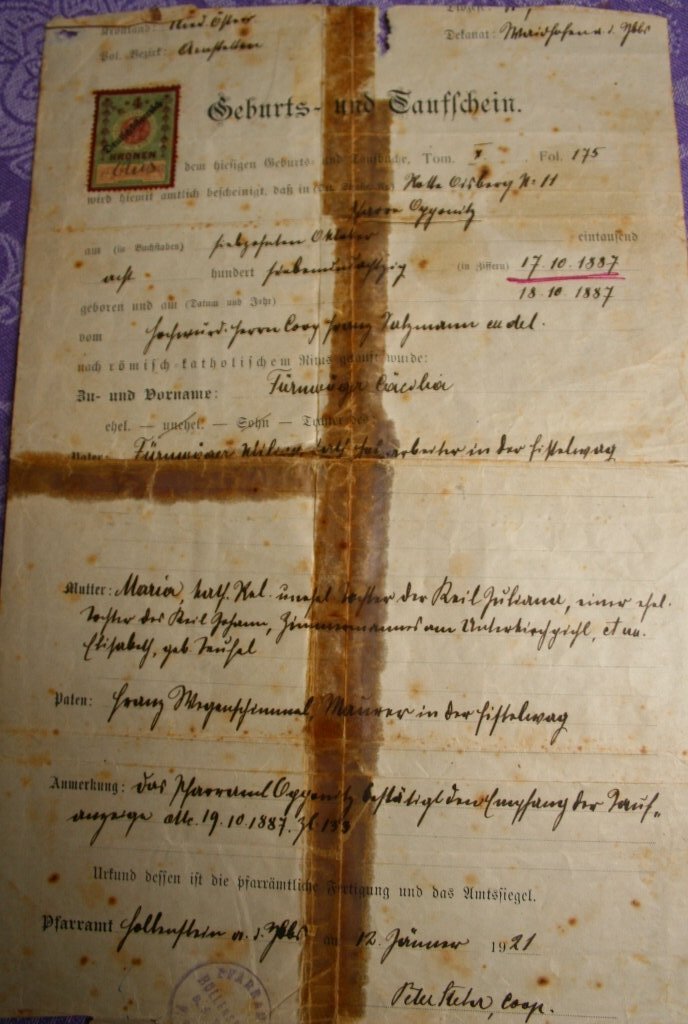 Kronland: Nied. Öster
Diözese:
Pol. Bezirk: Amstetten
Dekanat: Waidhofen a. d. Ybbs
4
KRONEN
Geburts- und Taufschein.
dem hiesigen Geburts- und Taufbuche, Tom. Fol. 175
wird hiemit amtlich bescheinigt, daß in Rotte Oisberg N: 11
Pfarre Opponitz
am (in Buchstaben) siebzehnten Oktober eintausend
acht hundert siebenundachtzig (in Ziffern) 17. 10. 1887
geboren und am (Datum und Jahr) 18. 10. 1887
vom hochwürd. Herrn Coop Franz Salzmann
nach römisch-katholischem Ritus getauft wurde:
Zu- und Vorname: Fürnwöger Cäcilia
ehel. — unehel. — Sohn — Tochter des:
Vater: Fürnwöger kath. arbeiter in der Eisselwag
Mutter: Maria, kath. Rel. unehel. Tochter der Keil Juliana, einer ehel.
Tochter des Keil Johann, Zimmermannes am Unterkirchgichl, et ux.
Elisabeth, geb
Paten: Franz Wegenschimmel, Maurer in der Eisselwag
Anmerkung: Das Pfarramt Opponitz bestätigt den Empfang der Tauf-
anzeige 19. 10. 1887. Zl.
Urkund dessen ist die pfarrämtliche Fertigung und das Amtssiegel.
Pfarramt Hollenstein a. d. Ybbs am 12. Jänner 1921
Coop.